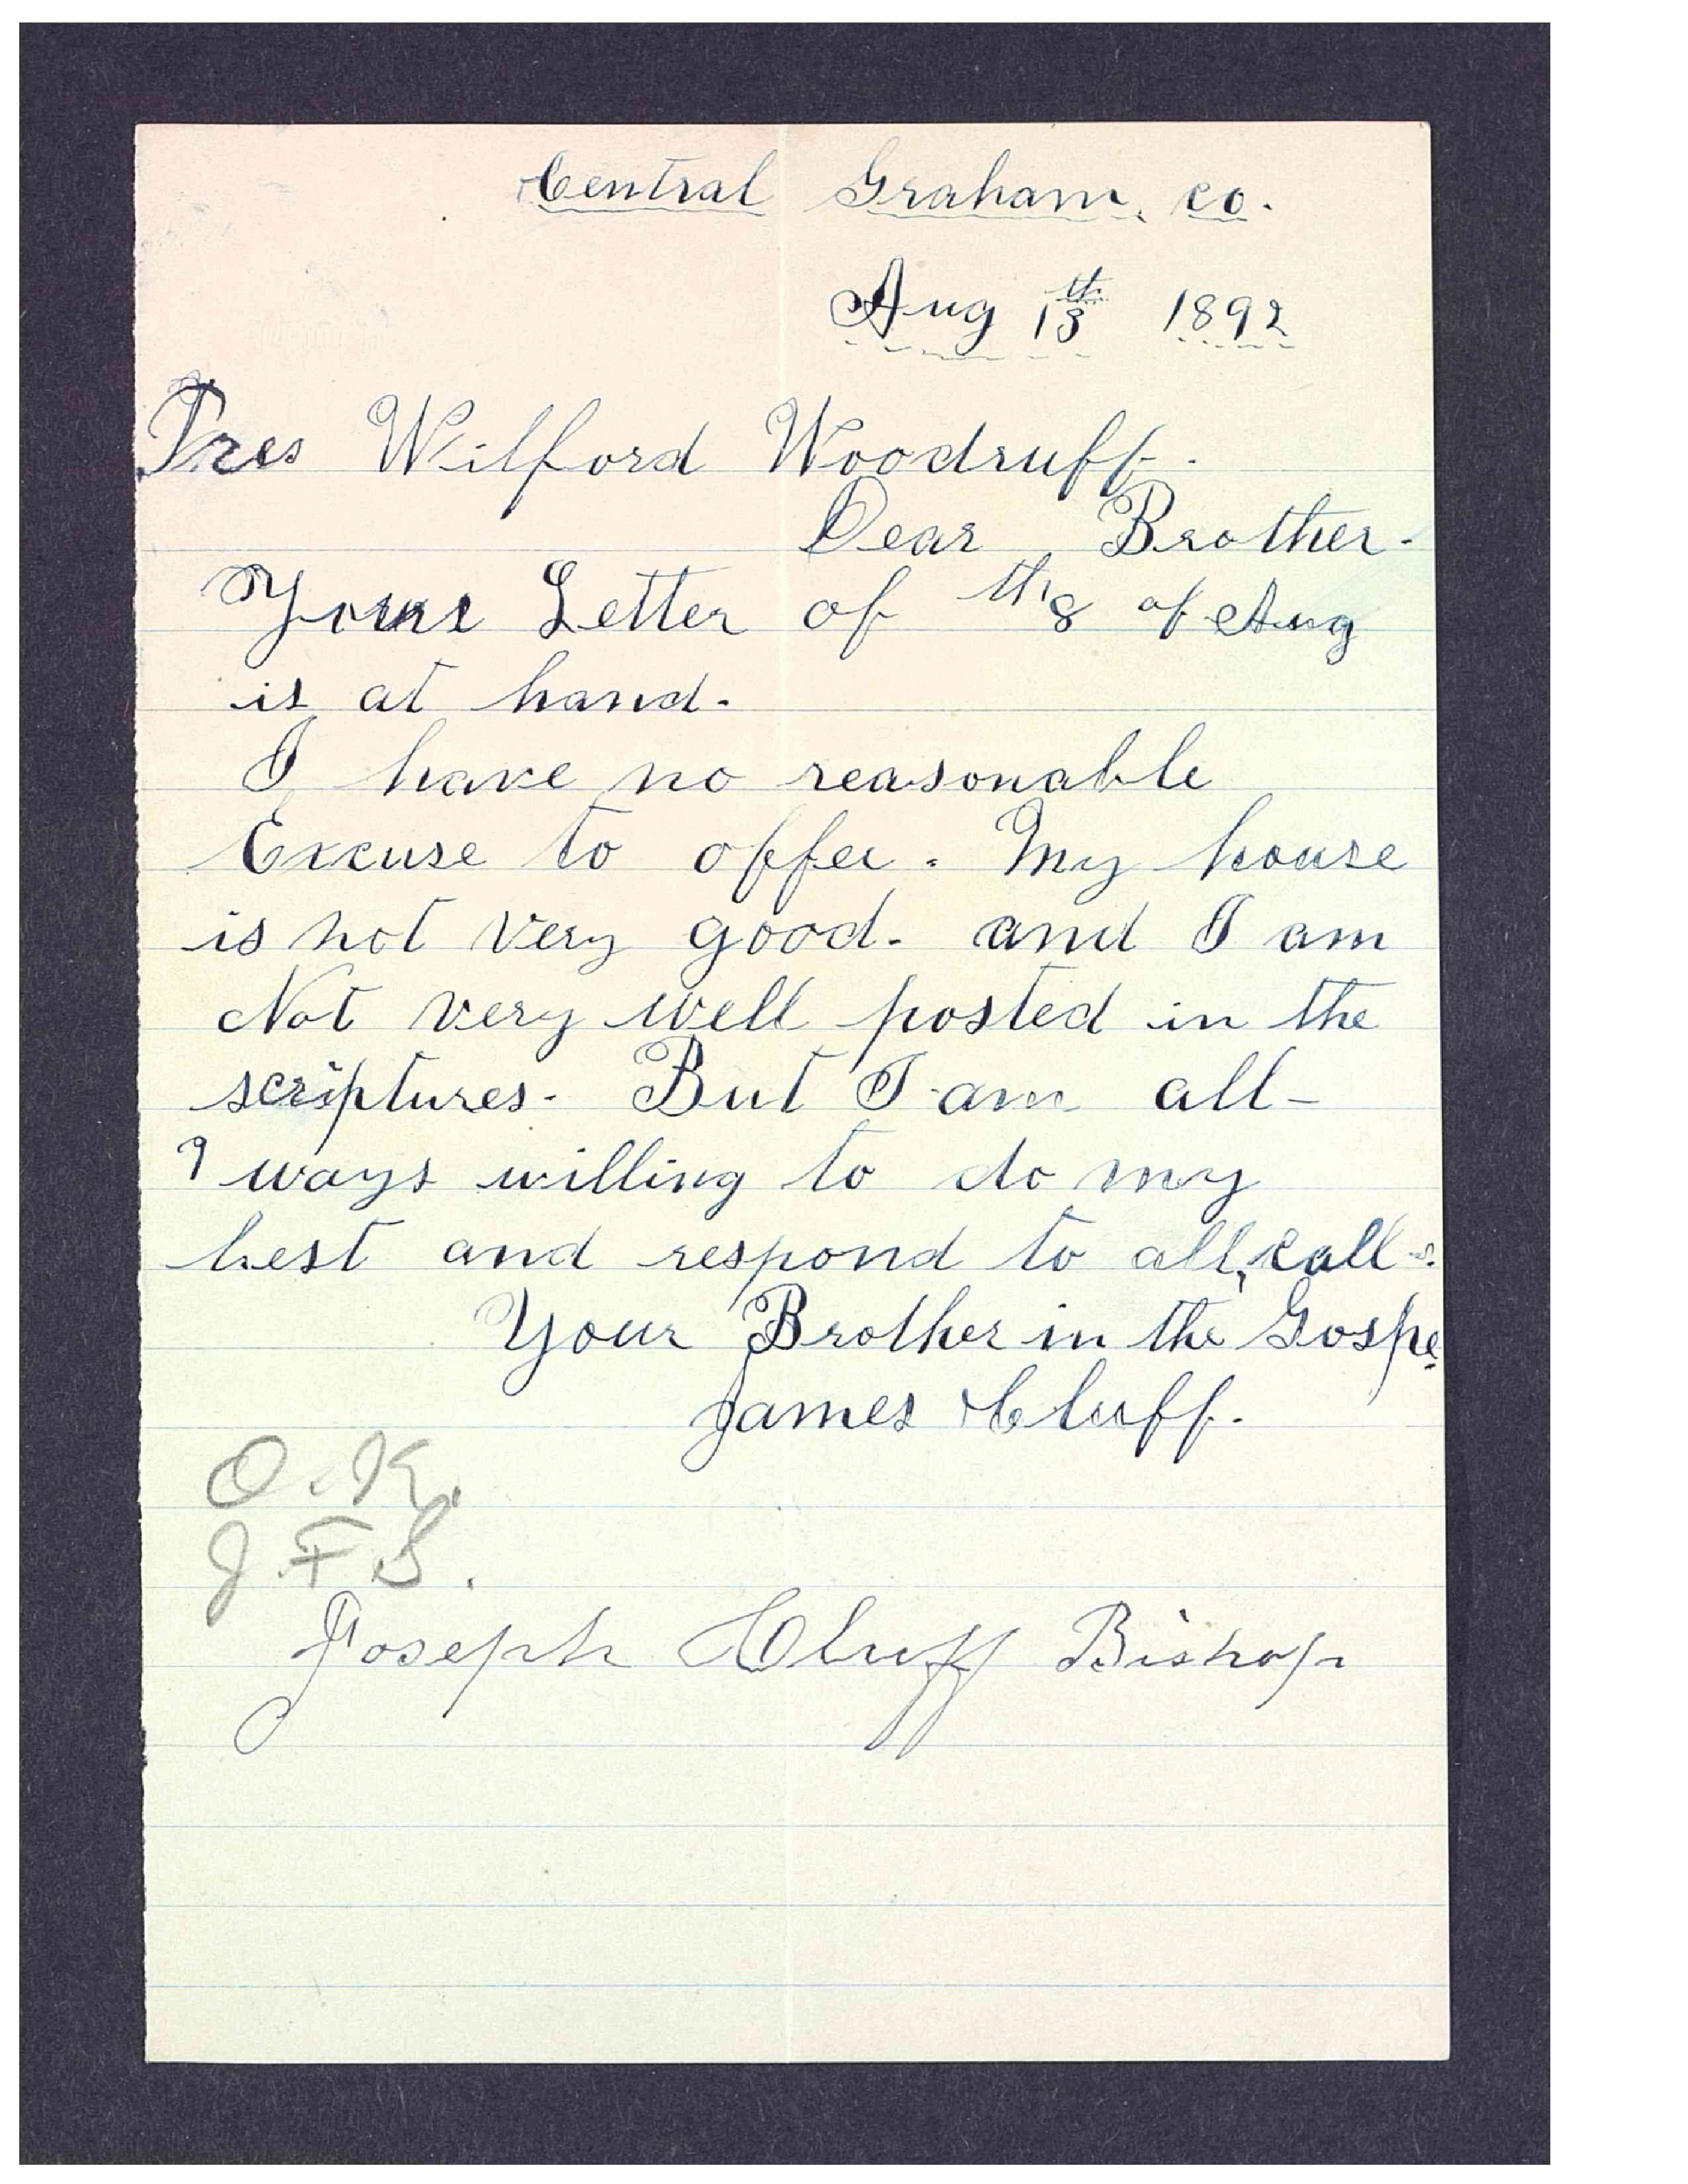 Central Graham. co.
Aug 13th 1892
Pres Wilford Woodruff.
Dear Brother.
Your Letter of th8 of Aug
is at hand.
I have no reasonable
Excuse to offer. My house
is not very good. and I am
Not very well posted in the
scriptures. But I am all-
ways willing to do my
best and respond to all, calls.
Your Brother in the Gospe
James Cluff.
O.K.
J.F.S.
Joseph Cluff Bishop